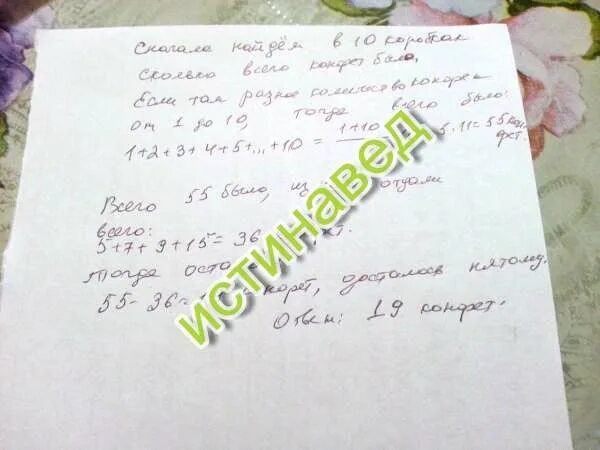 Сначала найдём в 10 коробках
сколько всего конфет было,
Если там разное количество конфет
от 1 до 10, тогда всего было:
1+2+3+4+5+...+10 = 1+10 5·11=55 кон
фет.
Всего 55 было, из отдали
всего:
5+7+9+15=36 кт.
Тогда оста
55-36= конфет, досталось пятому.
Ответ: 19 конфет.
ИСТИНАВЕД